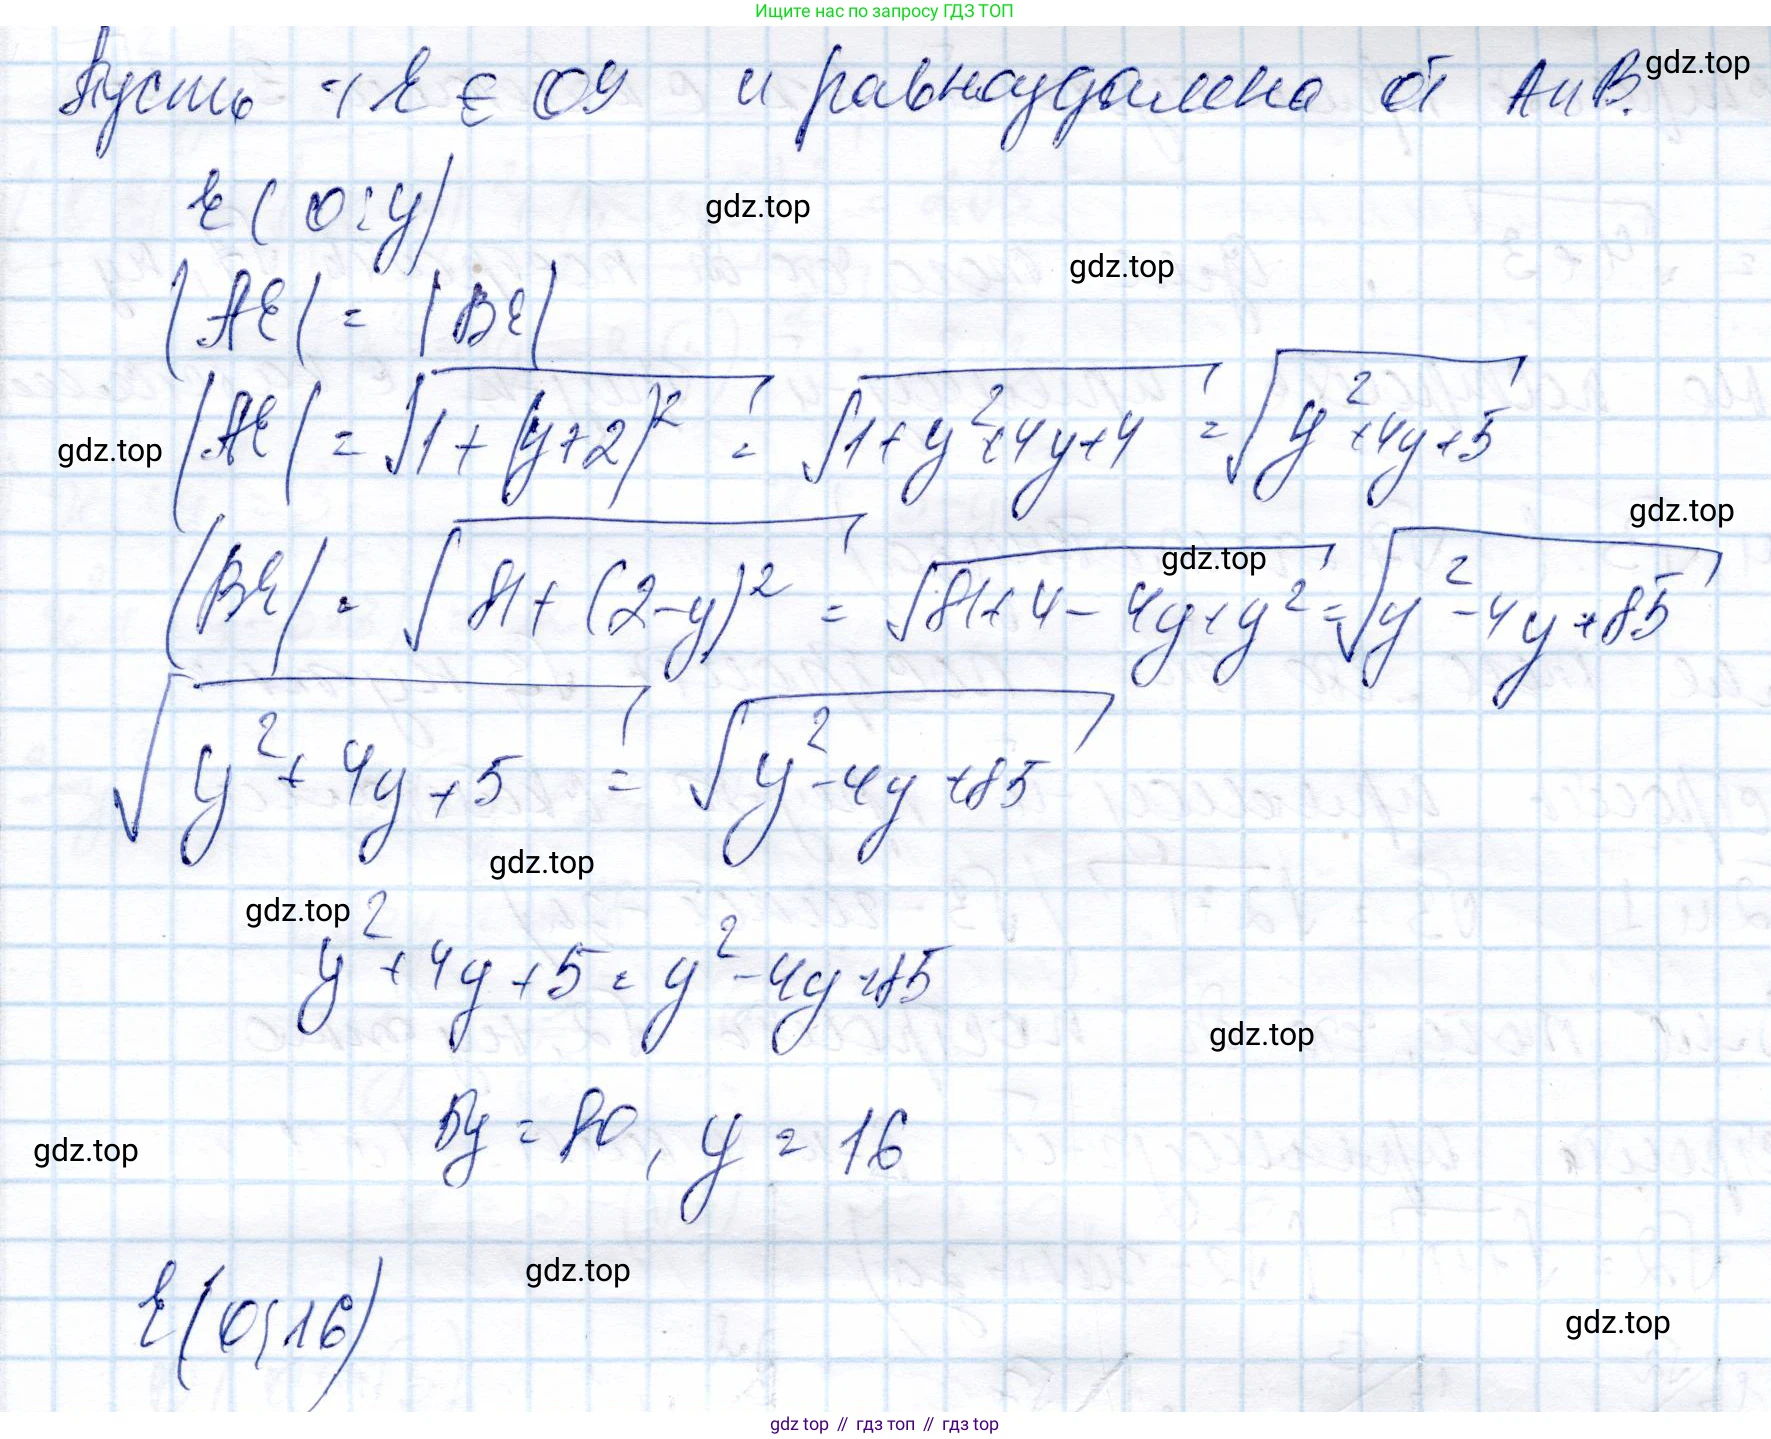 Ищите нас по запросу ГДЗ ТОП
Пусть т E ∈ OY и равноудалена от A и B.
gdz.top
E(0; y)
gdz.top
gdz.top
|AE| = |BE|
|AE| = √(1+(y+2)²) = √(1+y²+4y+4) = √(y²+4y+5)
gdz.top
gdz.top
|BE| = √(81+(2-y)²) = √(81+4-4y+y²) = √(y²-4y+85)
gdz.top
√(y²+4y+5) = √(y²-4y+85)
gdz.top
gdz.top
y²+4y+5 = y²-4y+85
gdz.top
y = 80, y = 16
gdz.top
E(0; 16)
gdz.top
gdz.top
gdz top // гдз топ // гдз top